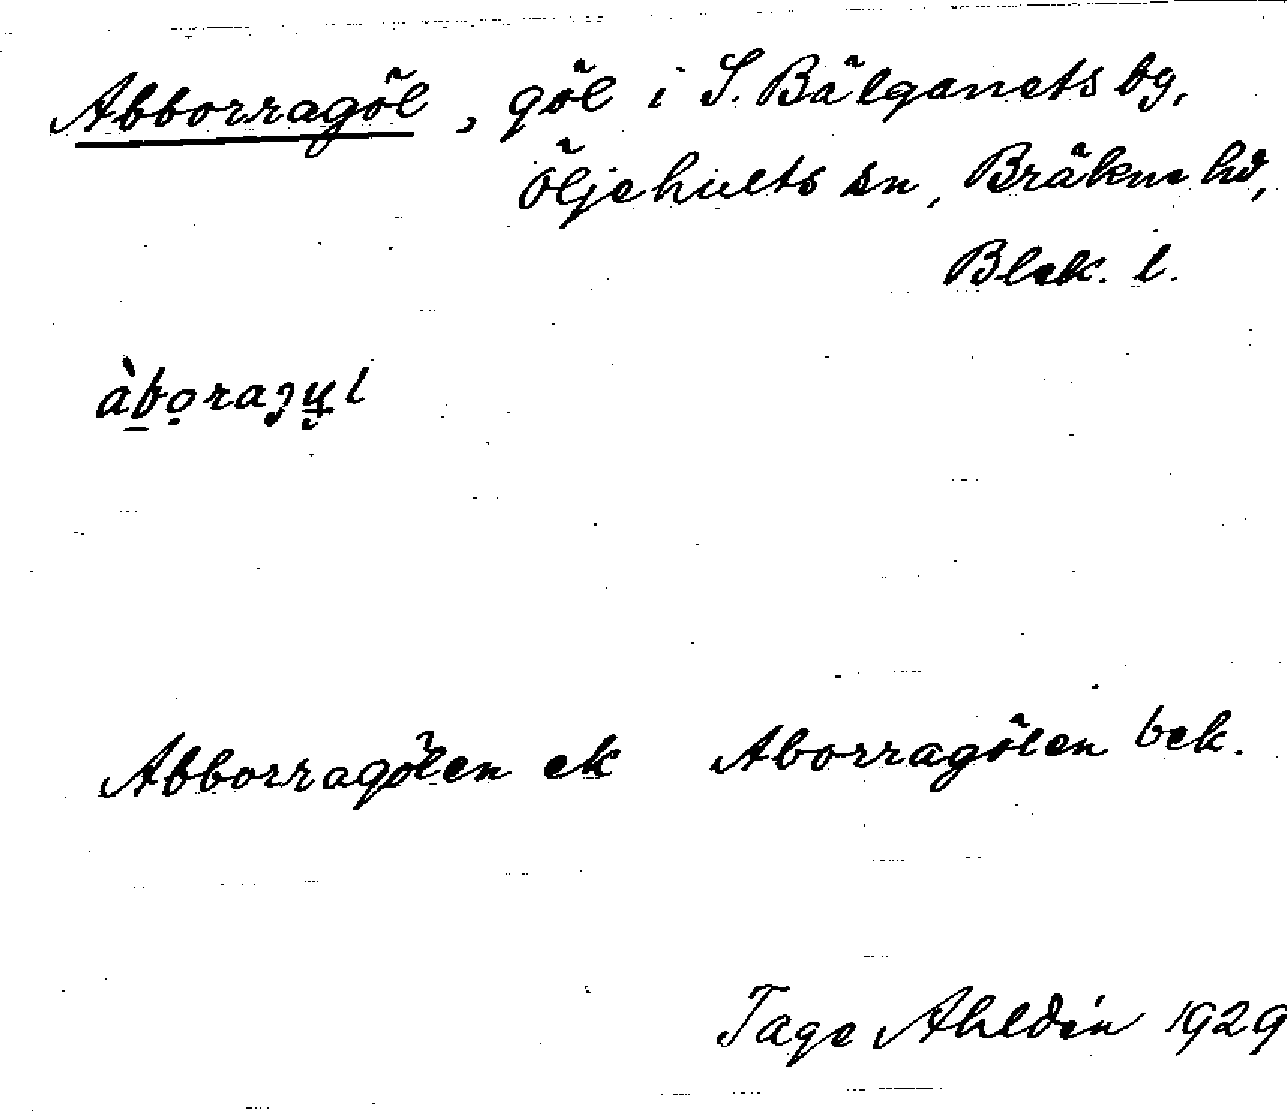 Abborragöl, göl i S. Bälganets by,
Öljehults sn, Bräkne hd,
Blek. l.
àbọraɟy̤l
Abborragölen ek Aborragölen bek.
Tage Ahldén 1929